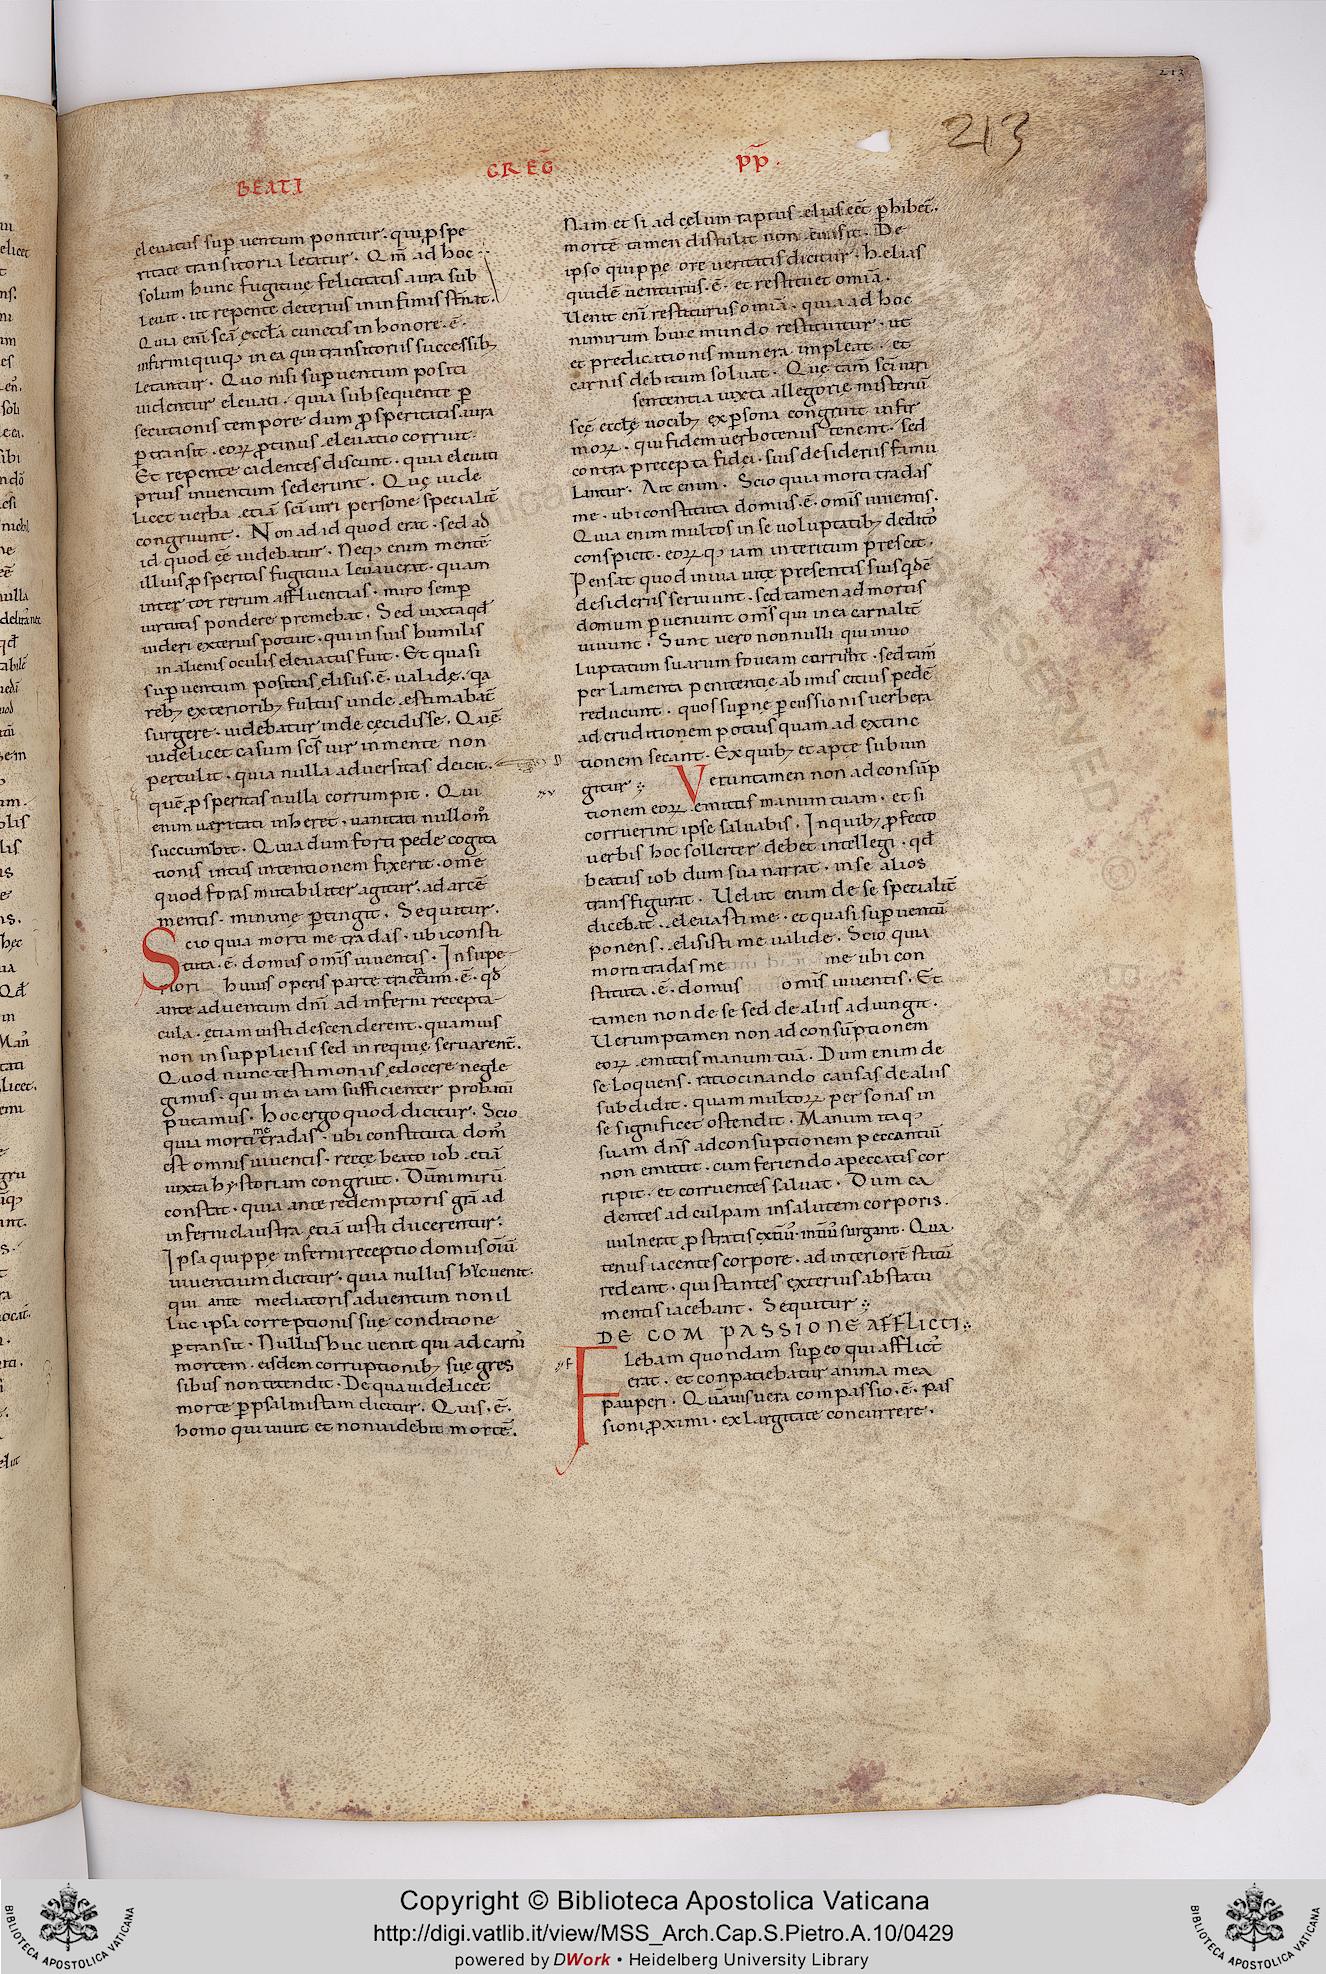 213
213
BEATI GREḠ p̄p̄.
elevatus sup̱ ventum ponitur. qui ꝓspe
ritate transitoria letatur. Qm̄ ad hoc
solum hunc fugitiuę felicitatis aura sub
leuit. ut repente deterius in infimis st̄nat.
Quia eni sc̄a ęccła cunctis in honore .ē.
infirmi quiq; in ea qui transitoriis successib;
letantur. Quo nisi sup̱ uentum positi
uidentur eleuati. quia subsequente p̱
secutionis tempore dum ꝓsperitatis aura
p̱transit. eoꝝ ꝓtinus eleuatio corruit.
Et repente cadentes discunt. quia eleuati
prius in uentum sederunt. Quę uide
licet uerba etiā sc̄i uiri persone specialit̄
congruunt. Non ad id quod erat. sed ad
id quod eē uidebatur. Neq; enim mentē
illius ꝓsperitas fugitiua leuauerat. quam
inter tot rerum affluentias. miro semp̱
uirtutis pondere premebat. Sed iuxta qđ
uideri exterius potuit. qui in suis humilis
in alienis oculis eleuatus fuit. Et quasi
sup̱ uentum positus elisus .ē. ualidę. qa
reb; exteriorib; fultus unde estimabat̄
surgere. uidebatur inde cecidisse. Quē
uidelicet casum sc̄s uir in mente non
pertulit. quia nulla aduersitas deicit.
quē ꝓsperitas nulla corrumpit. Qui
enim ueritati inheret. uanitati nullom̊
succumbit. Quia dum forti pede cogita
tionis intus intentionem fixerit. omē
quod foras mutabiliter agitur. ad arcē
mentis. minimę p̱tingit. Sequitur.
Scio quia morti me tradas. ubi consti
tuta .ē. domus om̄is uiuentis. In supe
riori huius operis parte tractatum .ē. qđ
ante aduentum dn̄i ad inferni recepta
cula. etiam iusti descenderent. quamuis
non in suppliciis sed in requie seruarent̄.
Quod nunc testimoniis edocere negle
gimus. qui in ea iam sufficienter probatū
putamus. hoc ergo quod dicitur. Scio
quia morti me tradas. ubi constituta dom̊
est omnis uiuentis. recte beato iob etiā
iuxta hystoriam congruit. Dum mirū
constat. quia ante redemptoris gr̄a ad
inferni claustra etiā iusti ducerentur.
Ipsa quippe inferni receptio domus oīū
uiuentium dicitur. quia nullus hic uenit.
qui ante mediatoris aduentum non il
luc ipsa correptionis suę conditione
p̱transit. Nullus huc uenit qui ad carnis
mortem. eisdem corruptionib; suę gres
sibus non tetendit. De qua uidelicet
morte p̱ psalmistam dicitur. Quis .ē.
homo qui uiuit et non uidebit mortē.
Nam et si ad cęlum raptus elias eēt ꝓhibet̄.
mortē tamen distulit non euasit. De
ipso quippe ore ueritatis dicitur. helias
quidē uenturus .ē. et restituet omīa.
Uenit eni restiturus omīa. quia ad hoc
nimirum huic mundo restituitur. ut
et predicationis munera impleat. et
carnis debitum soluat. Quę tam̄ sc̄i uiri
sententia iuxta allegorię misteriū
sc̄ę eccłę uocib; ex p̱sona congruit infir
moꝝ. qui fidem uerbotenus tenent. sed
contra precepta fidei. suis desideriis famu
lantur. Ait enim. Scio quia morti tradas
me. ubi constituta domus .ē. om̄is uiuentis.
Quia enim multos in se uoluptatib; deditos
conspicit. eoꝝq; iam interitum prescit.
Pensat quod in uia uite presentis suis qđē
desideriis seruiunt. sed tamen ad mortis
domum p̱ueniunt om̄s qui in ea carnalit̄
uiuunt. Sunt uero nonnulli qui in uo
luptatum suarum foueam corruunt. sed tam̄
per lamenta penitentię ab imis citius pedē
reducunt. quos sup̱ne p̱cussionis uerbera
ad eruditionem potius quam ad extinc
tionem secant. Ex quib; et apte subiun
gitur. Veruntamen non ad consūp
tionem eoꝝ emittis manum tuam. et si
corruerint ipse saluabis. In quib; ꝓfecto
uerbis hoc sollerter debet intellegi. qđ
beatus iob dum sua narrat. in se alios
transfigurat. Uelut enim de se specialit̄
dicebat. eleuasti me. et quasi sup̱ uentū
ponens. elisisti me ualide. Scio quia
morti tradas me me ubi con
stituta .ē. domus om̄is uiuentis. Et
tamen non de se sed de aliis adiungit.
Uerumptamen non ad consūptionem
eoꝝ emittis manum tuā. Dum enim de
se loquens. ratiocinando causas de aliis
subdidit. quam multoꝝ personas in
se significet ostendit. Manum itaq;
suam dn̄s ad consūptionem peccantiū
non emittit. cum feriendo a peccatis cor
ripit. et corruentes saluat. Dum ca
dentes ad culpam in salutem corporis.
uulnerat ꝓstratis exti᷒. inti᷒ surgant. Qua
tenus iacentes corpore. ad interiorē statū
redeant. qui stantes exterius ab statu
mentis iacebant. Sequitur
DE COMPASSIONE AFFLICTI
Flebam quondam sup̱ eo qui afflict᷒
erat. et conpatiebatur anima mea
pauperi. Quāuis uera compassio .ē. pas
sioni ꝓximi. ex largitate concurrere.
Copyright © Biblioteca Apostolica Vaticana
http://digi.vatlib.it/view/MSS_Arch.Cap.S.Pietro.A.10/0429
powered by DWork • Heidelberg University Library
BIBLIOTECA APOSTOLICA VATICANA
BIBLIOTECA APOSTOLICA VATICANA